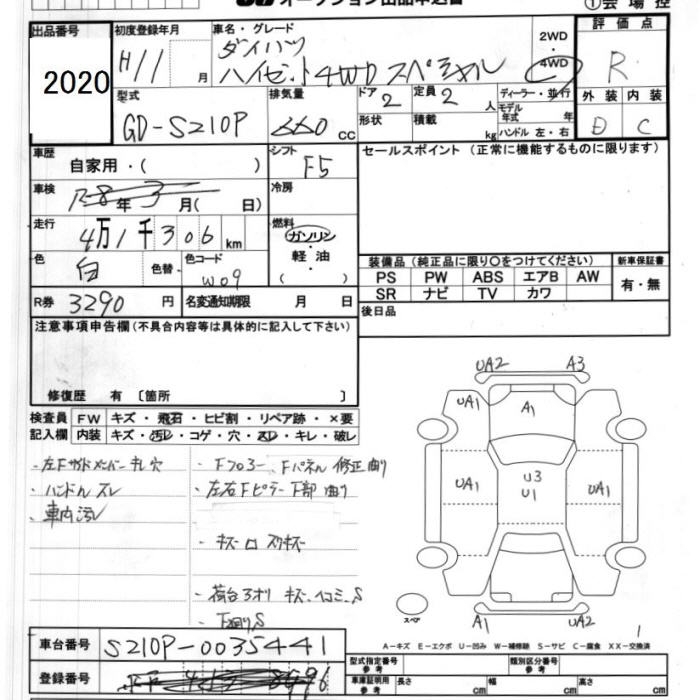 オークション出品申込書
①会場控
出品番号 2020
初度登録年月 H11 月
車名・グレード ダイハツ
ハイゼット4WD スペシャル
2WD・4WD
評価点 R
外装 内装
D C
型式 GD-S210P
排気量 660 cc
ドア 2
定員 2 人
ディーラー・並行
モデル年式 年
形状
積載 kg
ハンドル 左・右
車歴 自家用・( )
シフト F5
セールスポイント (正常に機能するものに限ります)
車検 R8年3月( 日)
冷房
走行 4万1千306km
燃料 ガソリン・軽油・( )
色 白
色替
色コード W09
装備品(純正品に限り○をつけてください)
新車保証書
PS PW ABS エアB AW
SR ナビ TV カワ
有・無
R券 3290円
名変通知期限 月 日
後日品
注意事項申告欄(不具合内容等は具体的に記入して下さい)
修復歴 有 〔箇所 〕
検査員記入欄
FW キズ・飛石・ヒビ割・リペア跡・×要
内装 キズ・汚レ・コゲ・穴・スレ・キレ・破レ
・左Fサイドメンバー サビ穴
・ハンドル スレ
・車内汚レ
・Fフロアー、Fパネル 修正 曲り
・左右Fピラー下部 曲り
・キズ ロ スリキズ
・荷台 アオリ キズ、ヘコミ、S
・下廻り、S
UA2 A3
UA1 A1 UA1
UA1 U3 UA1
U1
スペア
A1 UA2
1
A-キズ E-エクボ U-凹み W-補修跡 S-サビ C-腐食 XX-交換済
車台番号 S210P-0035441
型式指定番号 参考
類別区分番号 参考
登録番号
車庫証明用 参考 長さ cm 幅 cm 高さ cm